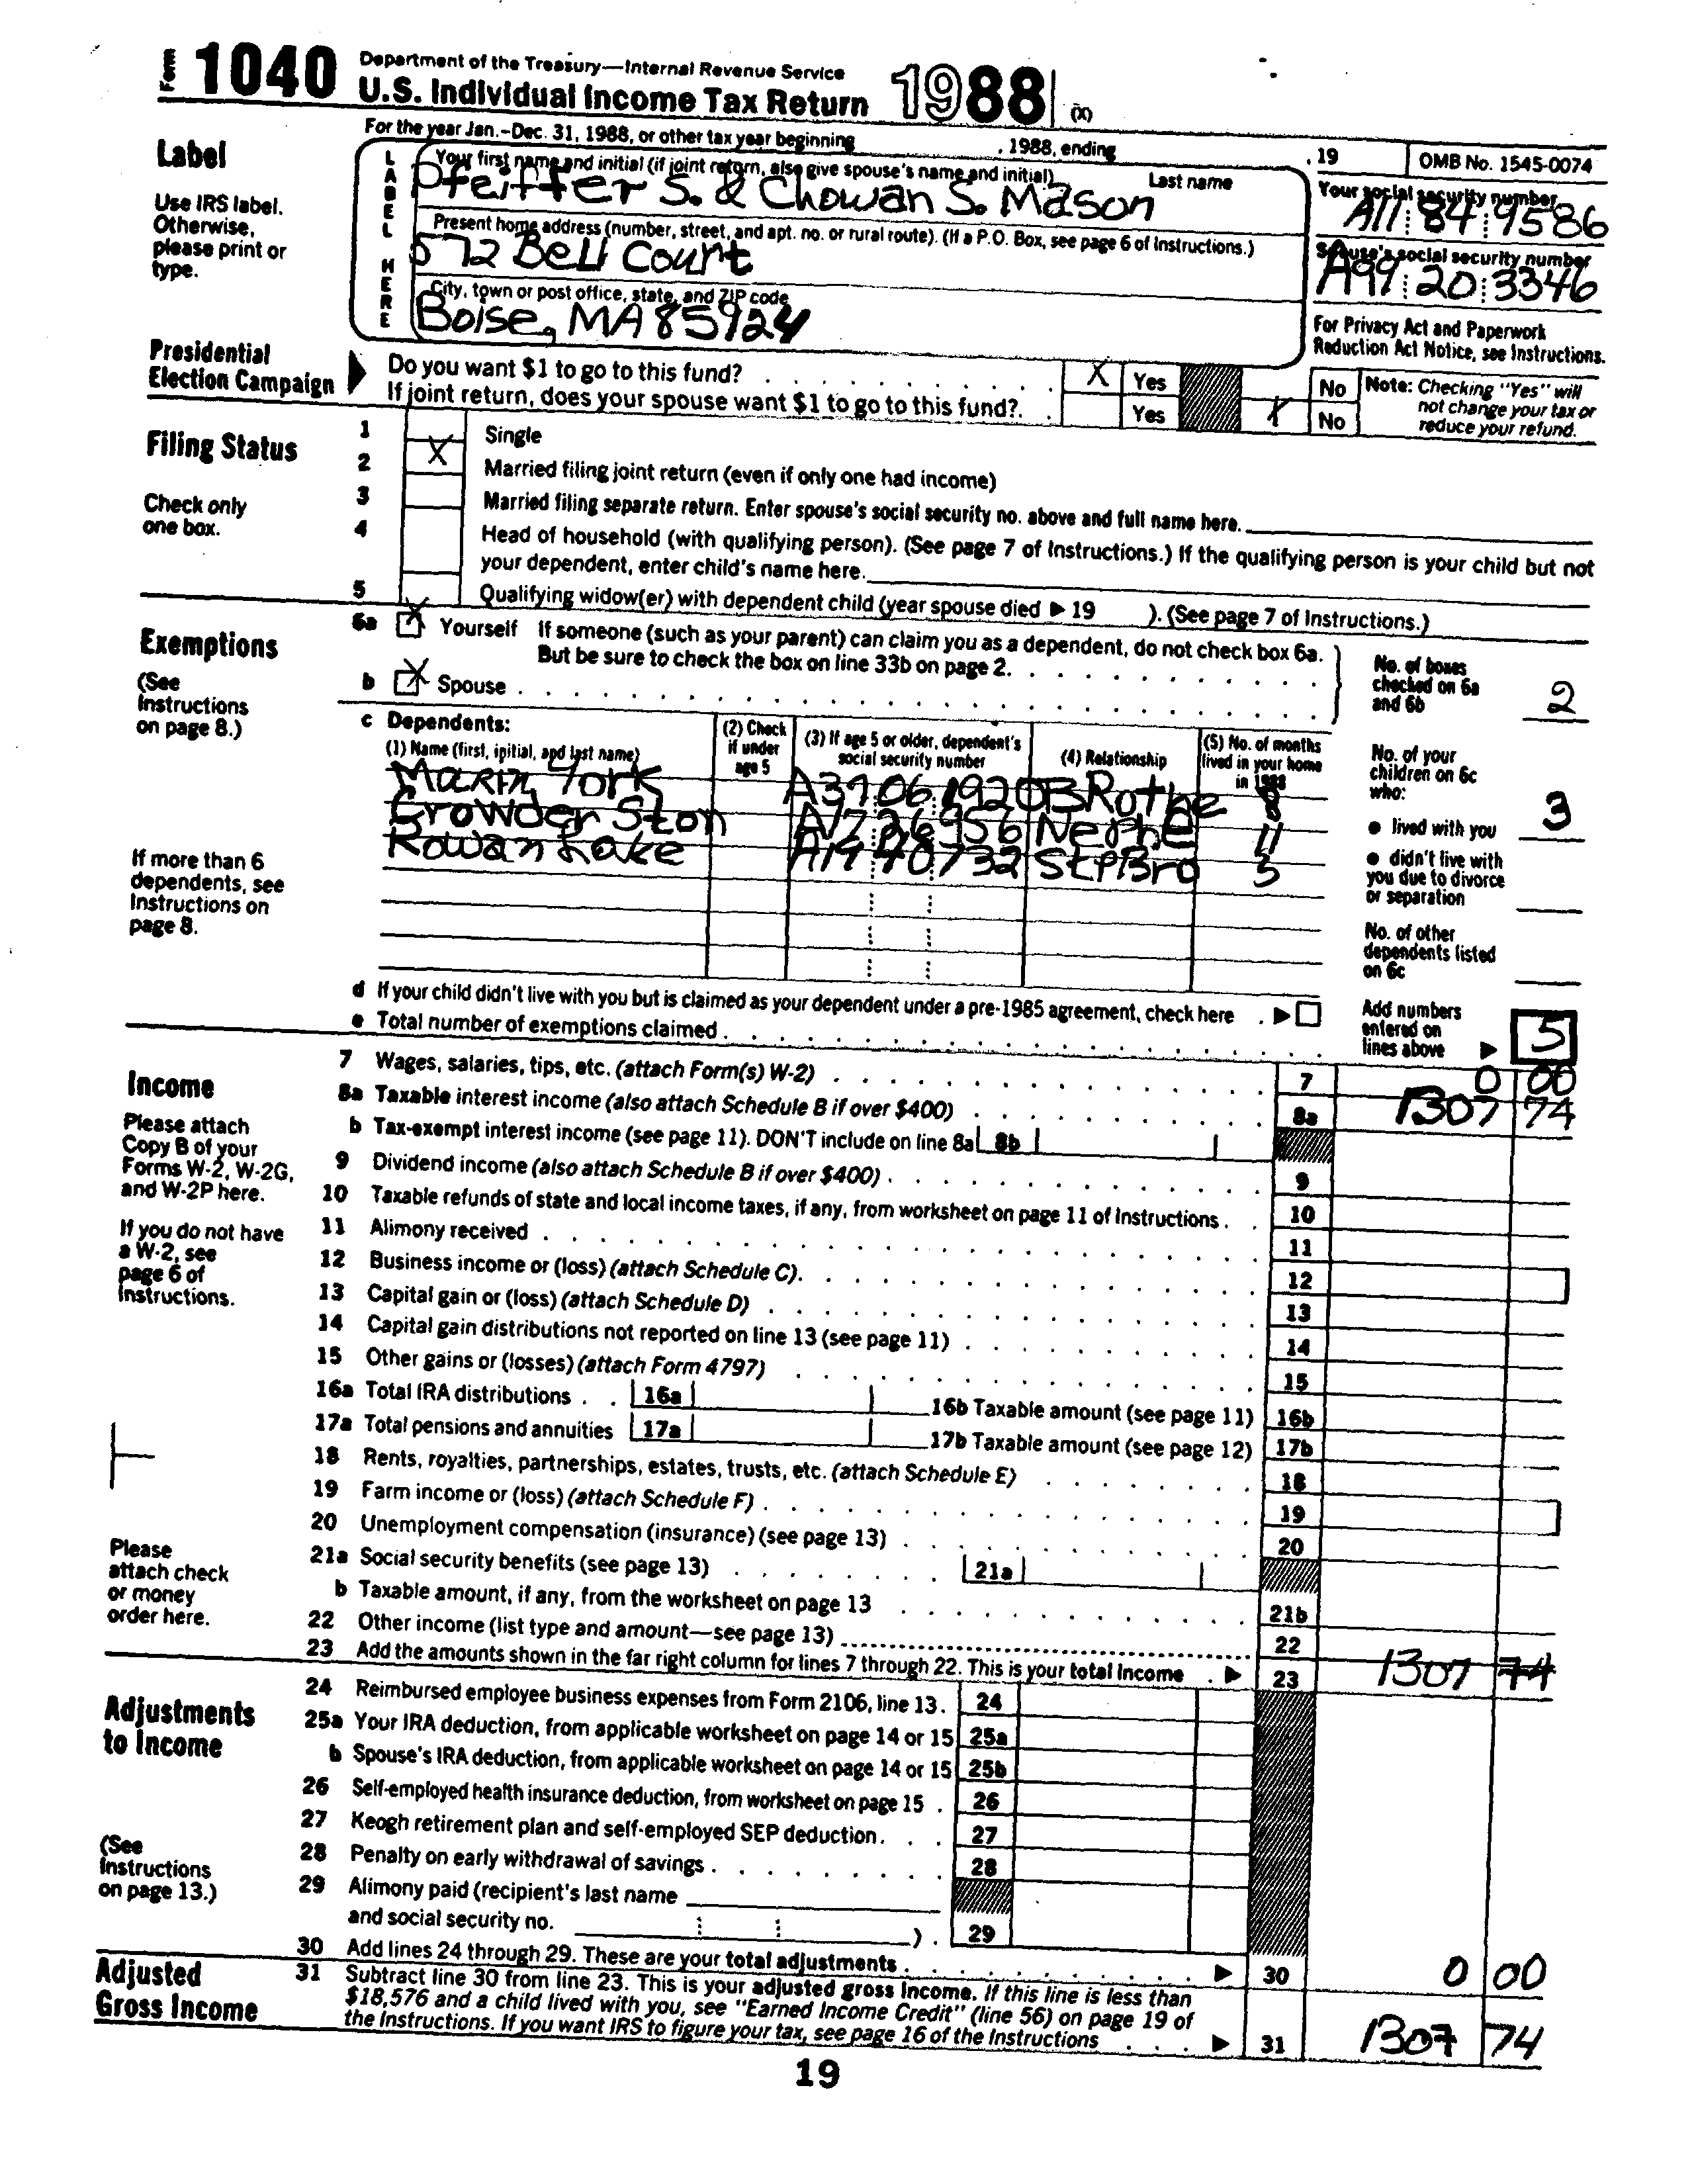 Form 1040 Department of the Treasury—Internal Revenue Service
U.S. Individual Income Tax Return 1988 (X)
For the year Jan.–Dec. 31, 1988, or other tax year beginning , 1988, ending , 19 OMB No. 1545-0074
Label
Use IRS label. Otherwise, please print or type.
LABEL HERE
Your first name and initial (if joint return, also give spouse's name and initial) Last name
Pfeiffer S. & Chowan S. Mason
Your social security number
A11 84 9586
Present home address (number, street, and apt. no. or rural route). (If a P.O. Box, see page 6 of Instructions.)
572 Bell Court
Spouse's social security number
A99 20 3346
City, town or post office, state, and ZIP code
Boise, MA 85924
For Privacy Act and Paperwork Reduction Act Notice, see Instructions.
Presidential Election Campaign
Do you want $1 to go to this fund? X Yes No
If joint return, does your spouse want $1 to go to this fund? Yes X No
Note: Checking "Yes" will not change your tax or reduce your refund.
Filing Status
Check only one box.
1 Single
2 X Married filing joint return (even if only one had income)
3 Married filing separate return. Enter spouse's social security no. above and full name here.
4 Head of household (with qualifying person). (See page 7 of Instructions.) If the qualifying person is your child but not
your dependent, enter child's name here.
5 Qualifying widow(er) with dependent child (year spouse died ▶ 19 ). (See page 7 of Instructions.)
Exemptions
(See Instructions on page 8.)
6a X Yourself If someone (such as your parent) can claim you as a dependent, do not check box 6a.
But be sure to check the box on line 33b on page 2.
b X Spouse
No. of boxes checked on 6a and 6b 2
c Dependents:
(1) Name (first, initial, and last name) (2) Check if under age 5 (3) If age 5 or older, dependent's social security number (4) Relationship (5) No. of months lived in your home in 1988
York A37 06 1920 BRothe 8
Crowder Ston Nephe 11
Rowan Lake StPBro
No. of your children on 6c who:
● lived with you 3
● didn't live with you due to divorce or separation
No. of other dependents listed on 6c
If more than 6 dependents, see Instructions on page 8.
d If your child didn't live with you but is claimed as your dependent under a pre-1985 agreement, check here ▶
e Total number of exemptions claimed
Add numbers entered on lines above ▶ 5
Income
Please attach Copy B of your Forms W-2, W-2G, and W-2P here.
If you do not have a W-2, see page 6 of Instructions.
Please attach check or money order here.
7 Wages, salaries, tips, etc. (attach Form(s) W-2) 7 0 00
8a Taxable interest income (also attach Schedule B if over $400) 8a 1307 74
b Tax-exempt interest income (see page 11). DON'T include on line 8a 8b
9 Dividend income (also attach Schedule B if over $400) 9
10 Taxable refunds of state and local income taxes, if any, from worksheet on page 11 of Instructions 10
11 Alimony received 11
12 Business income or (loss) (attach Schedule C) 12
13 Capital gain or (loss) (attach Schedule D) 13
14 Capital gain distributions not reported on line 13 (see page 11) 14
15 Other gains or (losses) (attach Form 4797) 15
16a Total IRA distributions 16a 16b Taxable amount (see page 11) 16b
17a Total pensions and annuities 17a 17b Taxable amount (see page 12) 17b
18 Rents, royalties, partnerships, estates, trusts, etc. (attach Schedule E) 18
19 Farm income or (loss) (attach Schedule F) 19
20 Unemployment compensation (insurance) (see page 13) 20
21a Social security benefits (see page 13) 21a
b Taxable amount, if any, from the worksheet on page 13 21b
22 Other income (list type and amount—see page 13) 22
23 Add the amounts shown in the far right column for lines 7 through 22. This is your total income ▶ 23 1307 74
Adjustments to Income
(See Instructions on page 13.)
24 Reimbursed employee business expenses from Form 2106, line 13. 24
25a Your IRA deduction, from applicable worksheet on page 14 or 15 25a
b Spouse's IRA deduction, from applicable worksheet on page 14 or 15 25b
26 Self-employed health insurance deduction, from worksheet on page 15 26
27 Keogh retirement plan and self-employed SEP deduction 27
28 Penalty on early withdrawal of savings 28
29 Alimony paid (recipient's last name
and social security no. ) 29
30 Add lines 24 through 29. These are your total adjustments ▶ 30 0 00
Adjusted Gross Income
31 Subtract line 30 from line 23. This is your adjusted gross income. If this line is less than
$18,576 and a child lived with you, see "Earned Income Credit" (line 56) on page 19 of
the Instructions. If you want IRS to figure your tax, see page 16 of the Instructions ▶ 31 1307 74
19